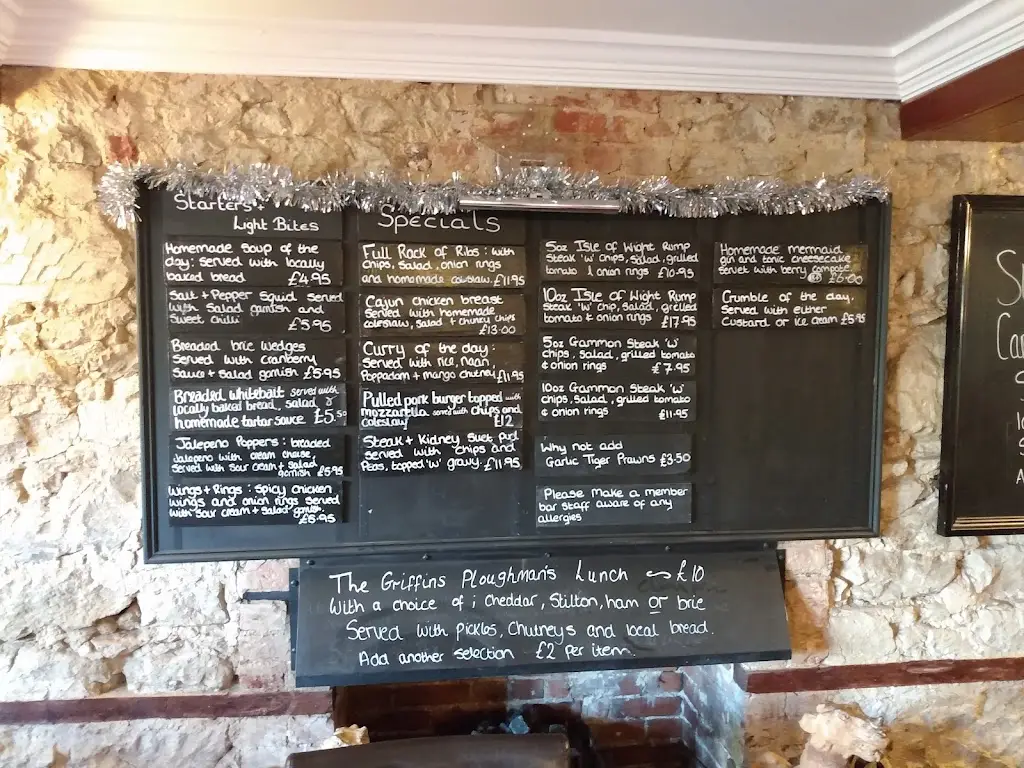 Starters +
Light Bites
Homemade Soup of the
day: served with locally
baked bread £4.95
Salt + Pepper Squid served
with Salad garnish and
Sweet chilli £5.95
Breaded brie wedges
Served with cranberry
Sauce + Salad garnish £5.95
Breaded whitebait served with
locally baked bread, salad &
homemade tartar sauce £5.50
Jalepeno Poppers: breaded
Jalepeno with cream cheese,
Served with sour cream + salad
garnish £5.95
Wings + Rings: Spicy chicken
wings and onion rings served
with Sour cream + salad garnish
£5.95
Specials
Full Rack of Ribs: with
chips, salad, onion rings
and homemade coleslaw. £11.95
Cajun chicken breast
Served with homemade
coleslaw, salad + chunky chips
£13.00
Curry of the day:
Served with rice, naan,
Poppadom + mango chutney £11.95
Pulled pork burger topped with
mozzarella served with chips and
coleslaw £12
Steak + Kidney Suet Pud
served with chips and
Peas, topped 'w' gravy. £11.95
5oz Isle of Wight Rump
Steak 'w' chips, salad, grilled
tomato & onion rings £10.95
10oz Isle of Wight Rump
Steak 'w' chip, salad, grilled
tomato + onion rings £17.95
5oz Gammon Steak 'w'
chips, salad, grilled tomato
& onion rings £7.95
10oz Gammon Steak 'w'
chips, salad, grilled tomato
& onion rings £11.95
Why not add
Garlic Tiger Prawns £3.50
Please make a member
bar staff aware of any
allergies
Homemade mermaid
gin and tonic cheesecake
servet with berry compote.
£6.00
Crumble of the day.
Served with either
Custard or ice cream £5.95
The Griffins Ploughman's Lunch ~ £10
With a choice of ; Cheddar, Stilton, ham or brie
Served with pickles, Chutneys and local bread.
Add another selection £2 per item.